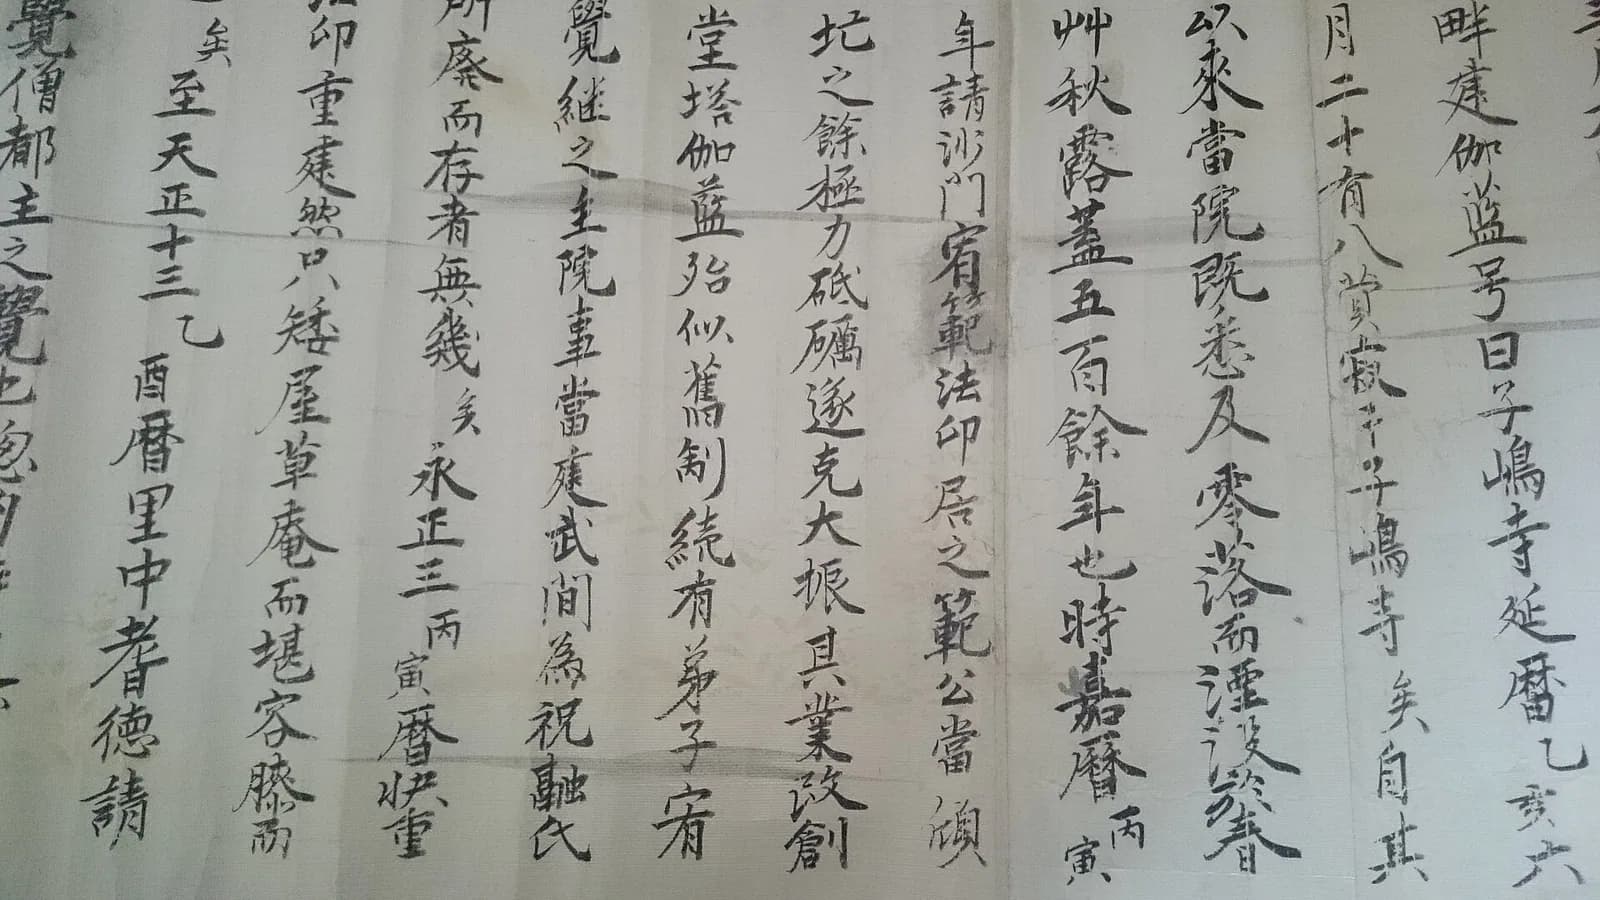 畔建伽藍号曰子嶋寺延暦乙亥六
月二十有八賞寂于子嶋寺矣自其
以来當院既悉及零落而湮没於春
艸秋露蓋五百餘年也時嘉暦丙寅
年請沙門宥範法印居之範公當頽
圮之餘極力砥礪遂克大振其業改創
堂塔伽藍殆似舊制続有弟子宥
覺継之主院事當建武間為祝融氏
所廃而存者無幾矣永正三丙寅暦快重
法印重建然只矮屋草庵而堪容膝而
矣至天正十三乙酉暦里中耆德請
覺僧都主之覺也